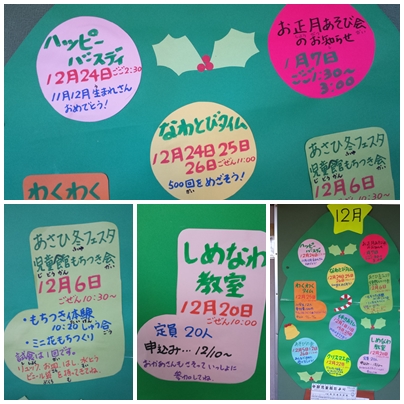 ハッピー
バースディ
12月24日ごご2:30
11月12月生まれさん
おめでとう!
お正月あそび会
のお知らせ
1月7日
ごご1:30~
3:00
なわとびタイム
12月24日25日
26日ごぜん11:00
500回をめざそう!
わくわく
あさひ冬フェスタ
児童館もちつき会
12月6日
ごぜん10:30~
あさひ冬フェスタ
児童館もちつき会
じどうかん
12月6日
ごぜん10:30~
・もちつき体験
10:20しゅう合
・ミニ花もちつくり
試食は1回です。
しめなわ
教室
12月20日
ごぜん10:00
定員20人
申込み…12/10~
おかあさんもさそっていっしょに
参加してね
12月
ハッピー
バースディ
なわとびタイム
わくわく
タイム
しめなわ
教室